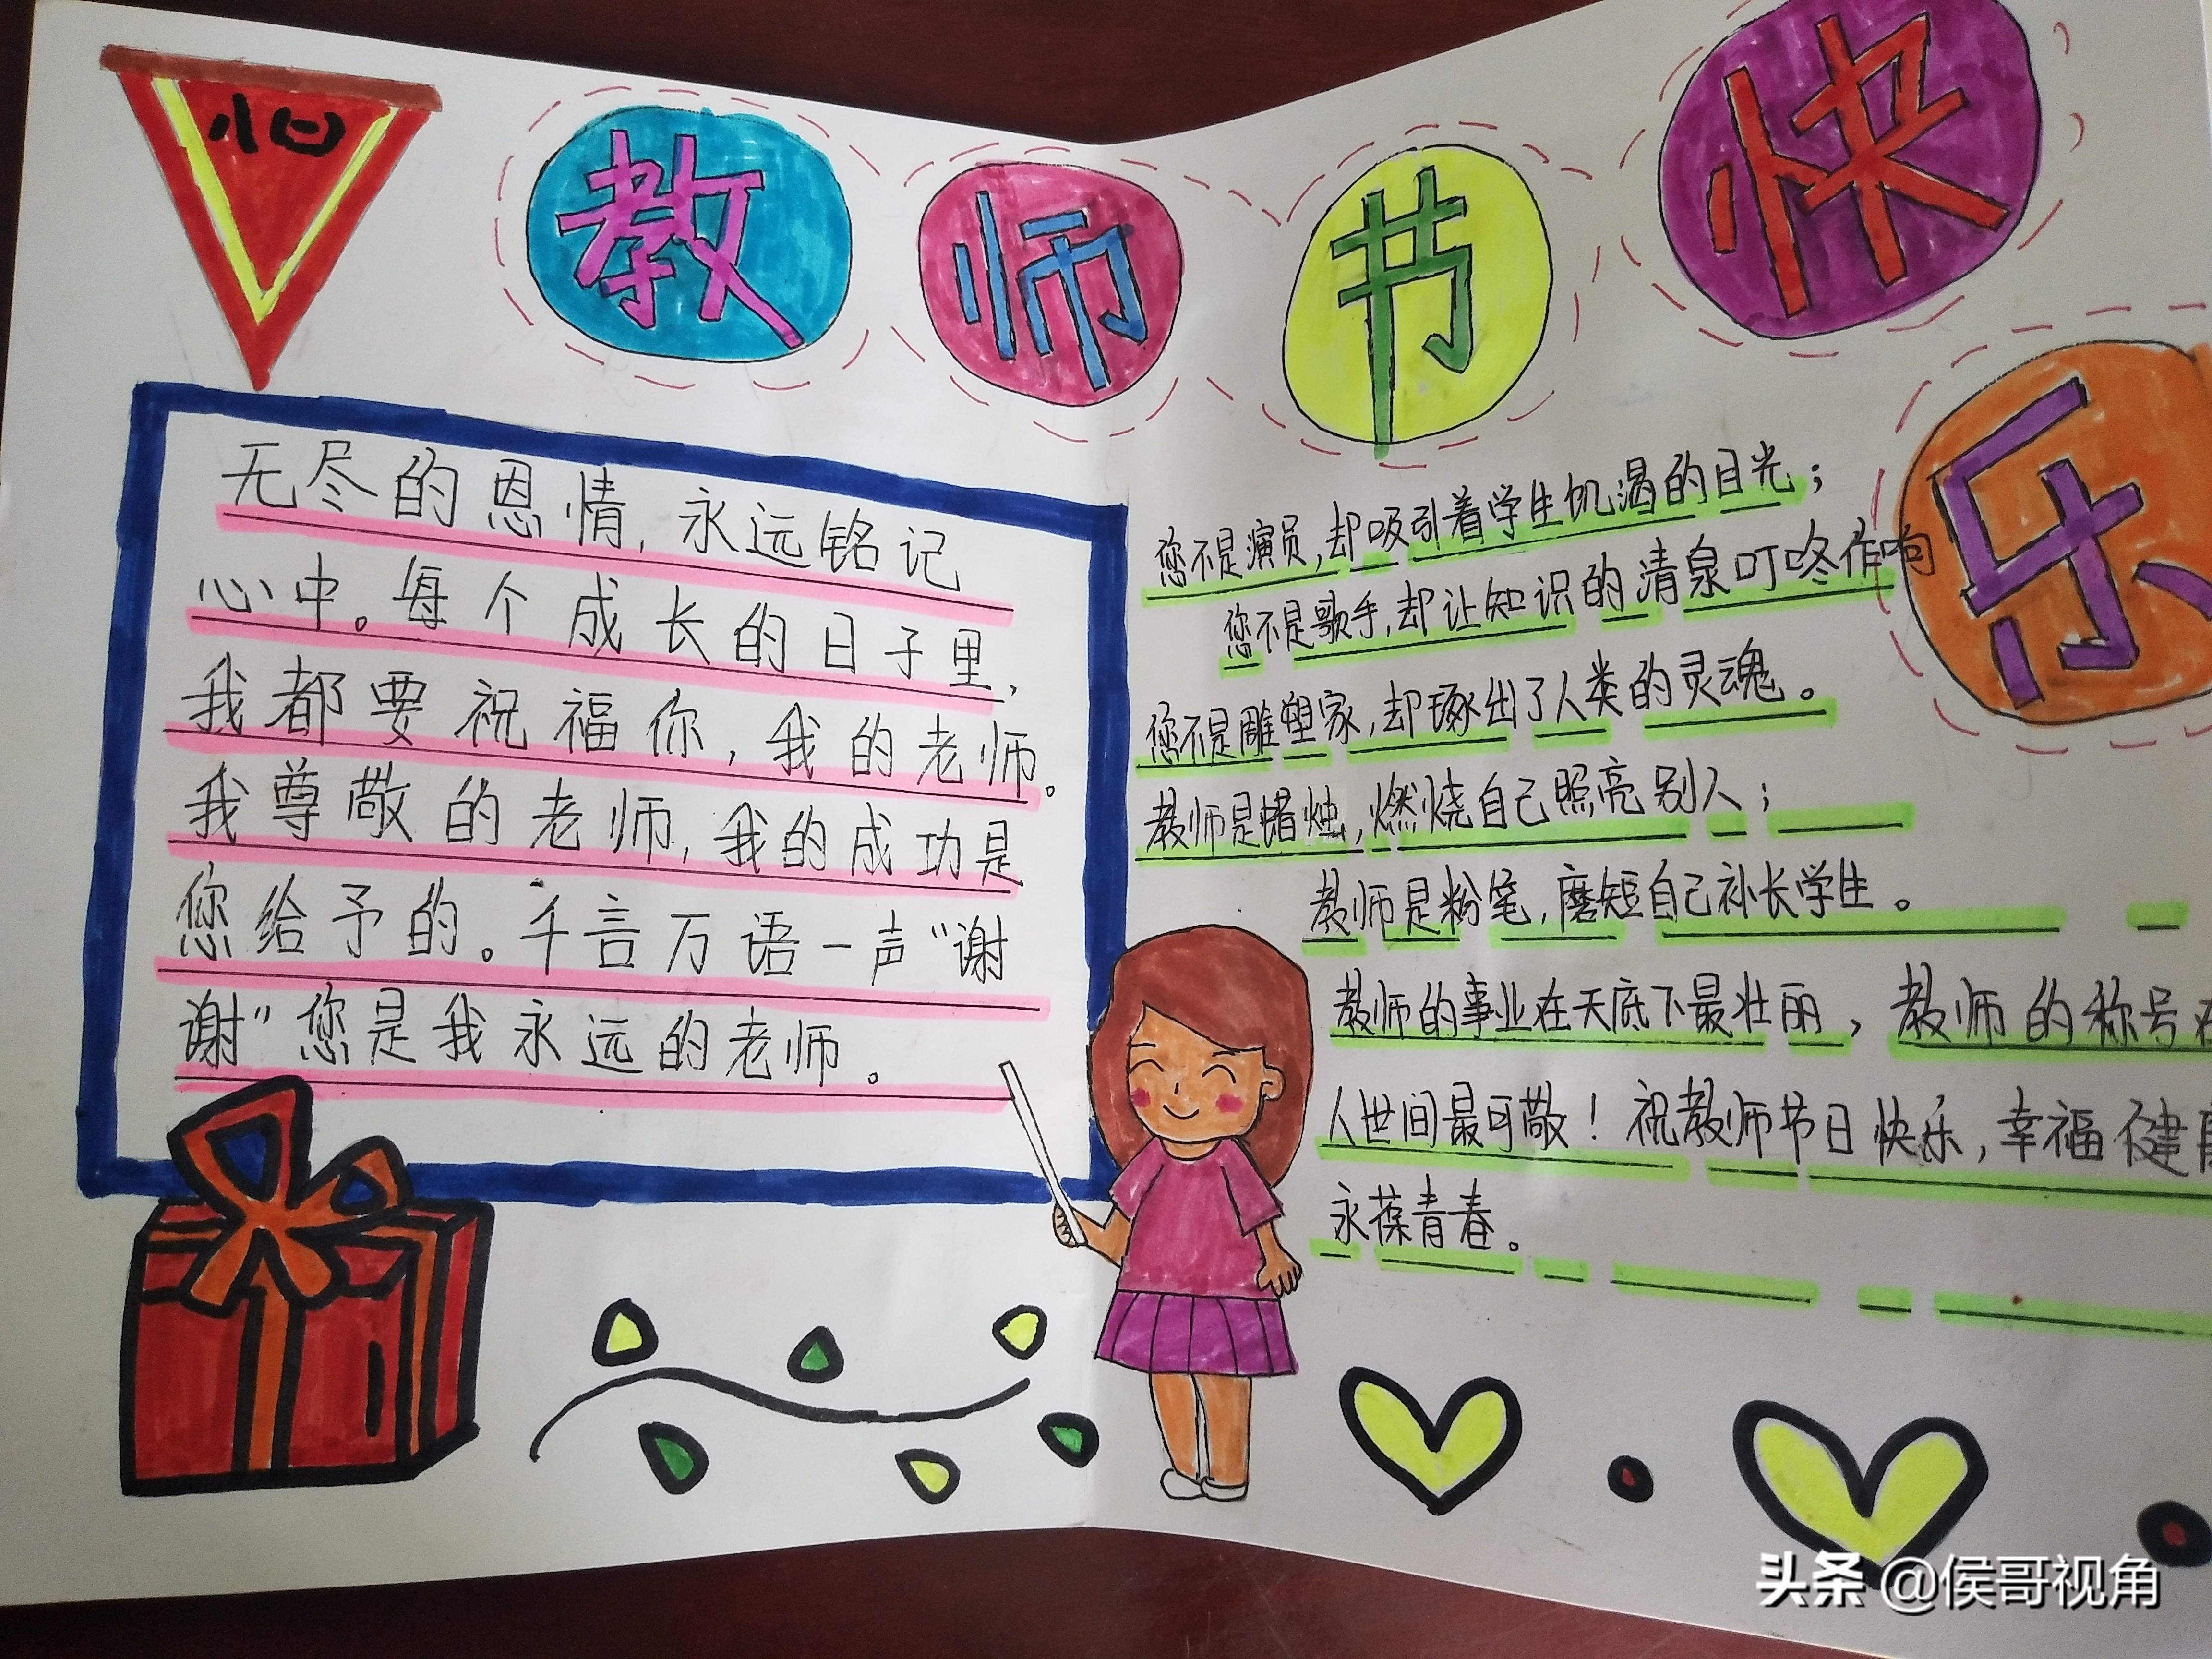 教师节快乐
无尽的恩情,永远铭记
心中。每个成长的日子里,
我都要祝福你,我的老师。
我尊敬的老师,我的成功是
您给予的。千言万语一声“谢
谢”您是我永远的老师。
您不是演员,却吸引着学生饥渴的目光;
您不是歌手,却让知识的清泉叮咚作响
您不是雕塑家,却琢出了人类的灵魂。
教师是蜡烛,燃烧自己照亮别人;
教师是粉笔,磨短自己补长学生。
教师的事业在天底下最壮丽,教师的称号
人世间最可敬!祝教师节日快乐,幸福健
永葆青春。
头条 @侯哥视角